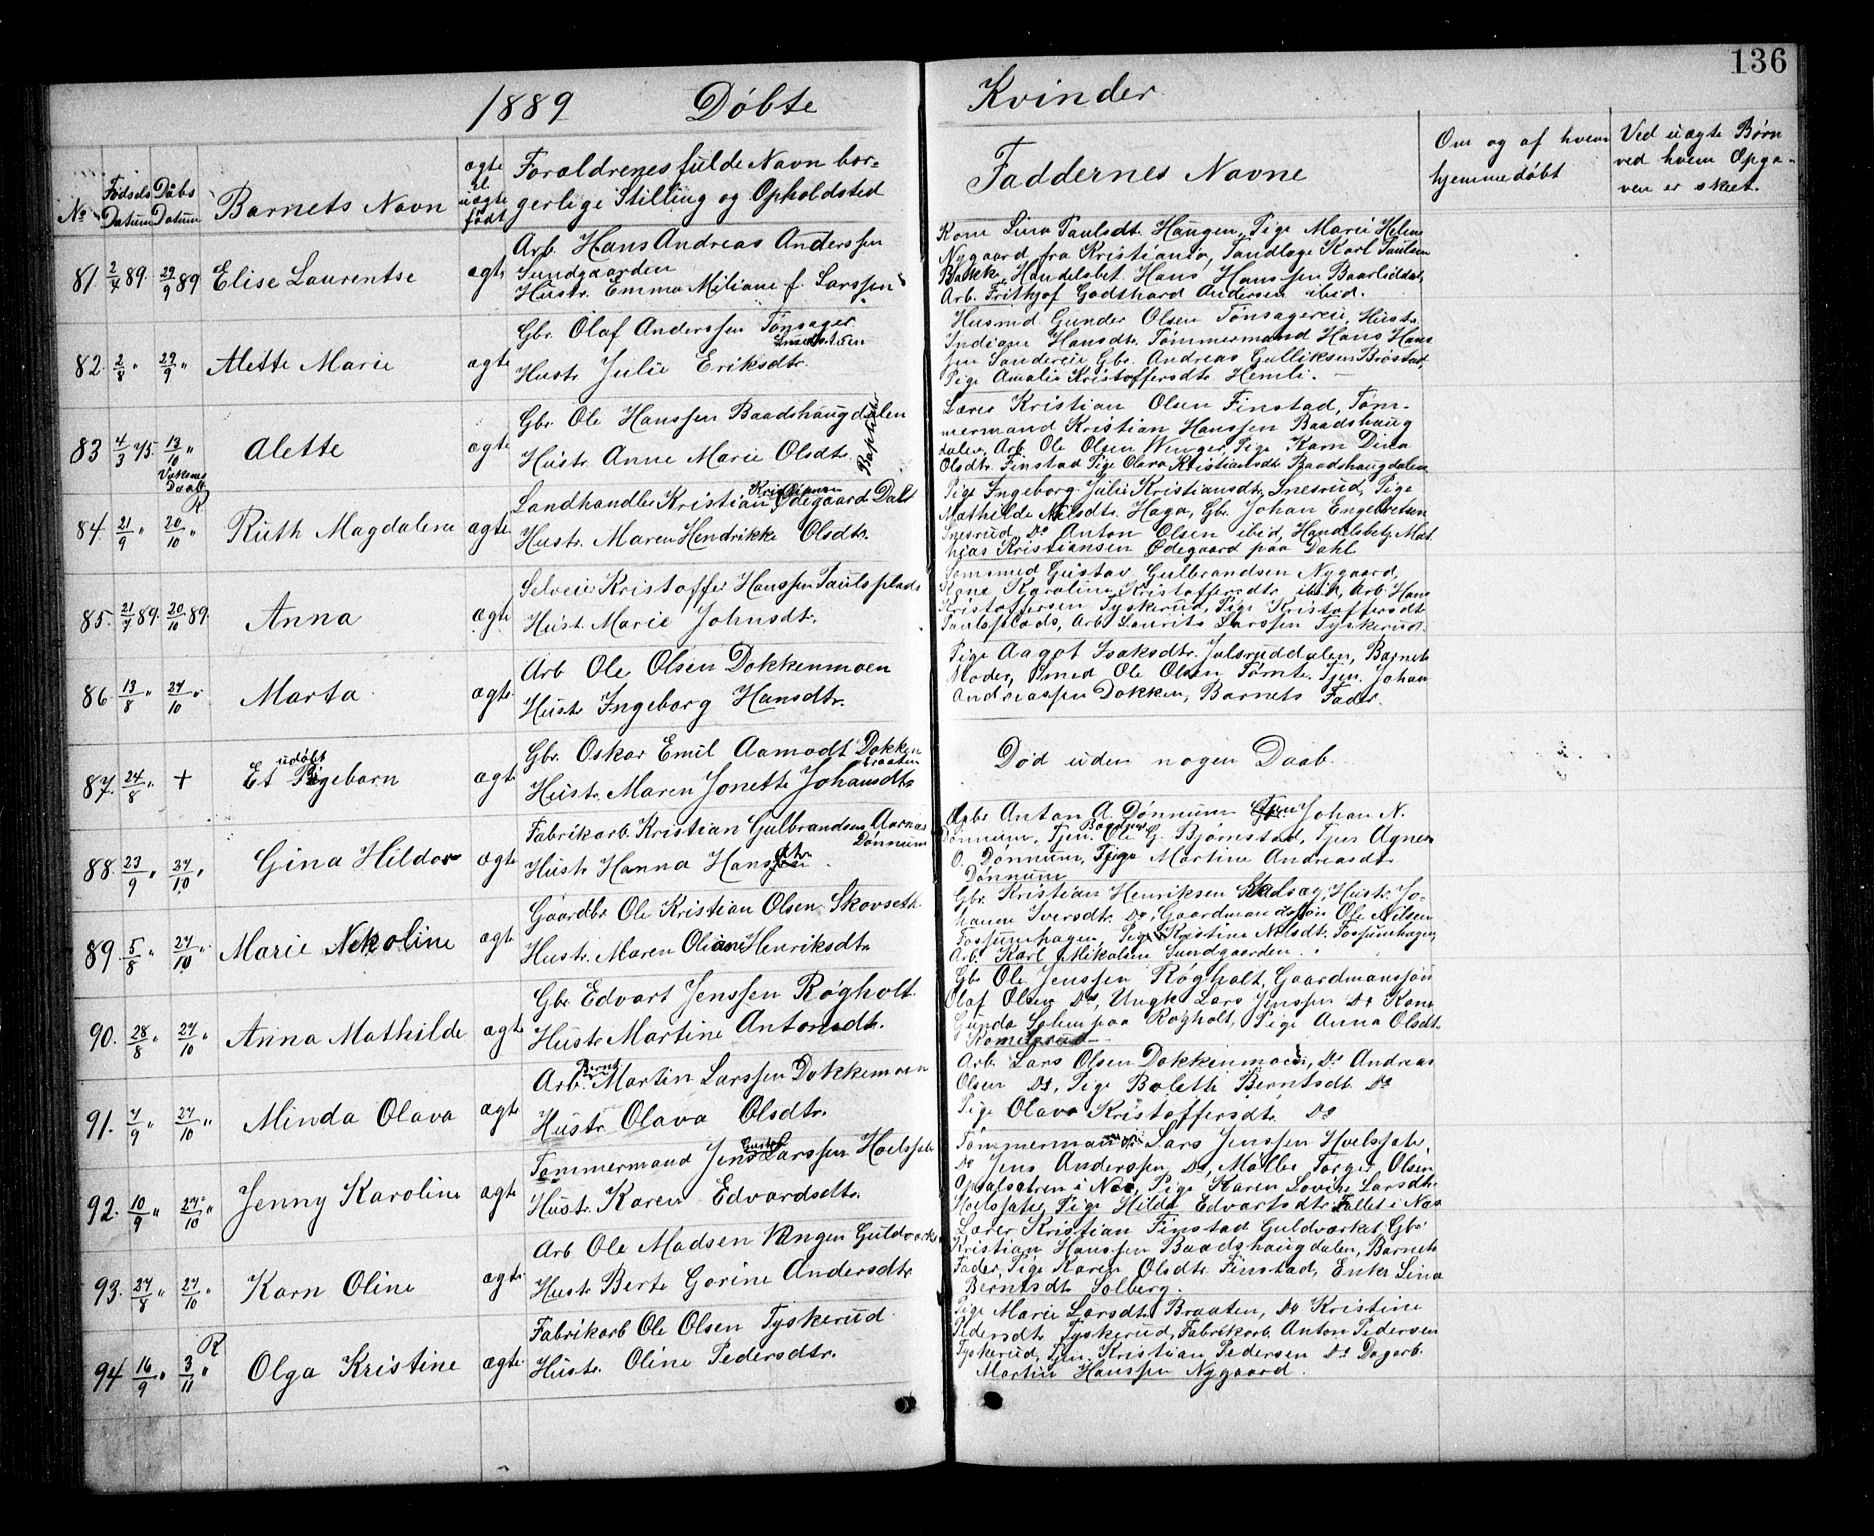 136
1889 Døbte Kvinder
No
Fødsels Datum
Daabs Datum
Barnets Navn
ægte el uægte født
Forældrenes fulde Navn bor-
gerlige Stilling og Opholdsted
Faddernes Navne
Om og af hvem
hjemmedøbt
Ved uægte Børn
ved hvem Opga-
ven er skeet.
81. 2/4 89. 29/9 89 Elise Laurentse ægte
Arb. Hans Andreas Anderssen
Sundgaarden
Hustr. Emma Miliane f. Larssen
Kone Lina Paulsdt. Haugen, Pige Marie Helene
Nygaard fra Kristiania, Tandlæge Karl Paulsen
Bakke, Handelsbet. Hans Hanssen
Arb. Frithjof Godthard Andersen ibid.
82. 2/8 " 29/9 " Alette Marie ægte
Gbr. Olaf Anderssen Tønsager
Hustr Julie Eriksdtr.
Husmd. Gunder Olsen Tønsagereie, Hustr.
Indiane Hansdtr. Tømmermand Hans Hans
sen Sandereie, Gbr. Andreas Gulliksen Brostad,
Pige Amalie Kristoffersdtr Hemli.
83 4/3 75. 13/10 " Alette ægte
Voksenes Daab
Gbr. Ole Hanssen Baadshaugdalen
Hustr. Anne Marie Olsdtr. Baptister
Lærer Kristian Olsen Finstad, Tøm-
mermand Kristian Hanssen Baadshaug
dalen, Arb. Ole Olsen Winger, Pige Karn Dina
Olsdtr. Finstad Pige Olava Kristiansdt Baadshaugdalen
84. 21/9 " 20/10 " R Ruth Magdalene ægte
Landhandler Kristian Kristiansen Ødegaard Dahl
Hustr. Maren Hendrikke Olsdtr.
Pige Ingeborg Julie Kristiansdtr. Snesrud, Pige
Mathilde Nilsdtr. Haga, Gbr. Johan Engebretsen
Snesrud, Do Anton Olsen ibid, Handelsbetj. Mat
hias Kristiansen Ødegaard paa Dahl
85. 21/7 89. 20/10 89. Anna ægte
Selveier Kristoffer Hanssen Paulsplads
Hust. Marie Johnsdt.
Gustav Gulbrandsen Nygaard,
Kone Karoline Kristoffersdtr ibid, Arb. Hans
Kristoffersen Tyskerud, Pige Kristoffersdtr
Paulsplads, Arb Laurits Larssen Tyskerud.
86 13/8 " 27/10 " Marta ægte
Arb Ole Olsen Dokkenmoen
Hustr Ingeborg Hansdtr.
Pige Aagot Isaksdtr. Julsruddalen, Barnets
Moder, Smed Ole Olsen Tømte, Tjen. Johan
Andreassen Dokken, Barnets Fader.
87. 24/8 " + Et udøbt Pigebarn ægte
Gbr. Oskar Emil Aamodt Dokken
braaten
Hustr. Maren Jonette Johansdtr
Død uden nogen Daab.
88. 23/9 " 27/10 " Gina Hilda ægte
Fabrikarb. Kristian Gulbrandsen Aarnæs
Dønnum
Hustr Hanna Hansdtr.
Gbr Anton A. Dønnum Johan N.
Dønnum, Tjen. Ole G. Bjørnstad, Tjen Agnes
O. Dønnum, Pige Martine Andreasdtr
Dønnum
89. 5/8 " 27/10 " Marie Nekoline ægte
Gaardbr Ole Kristian Olsen Skovseth
Hustr. Maren Oliane Henriksdtr
Gbr. Kristian Henriksen Hustr. Jo-
hanne Iversdtr. Do, Gaardmandssøn Ole Nilsen
Fossumhagen, Pige Kristine Nilsdt. Fossumhagen,
Arb. Karl Mikalsen Sundgaarden.
90. 28/8 " 27/10 " Anna Mathilde ægte
Gbr Edvart Jenssen Røgholt.
Hustr Martine Antonsdtr.
Gbr Ole Jenssen Røgholt, Gaardmanssøn
Olaf Olsen Do, Ungk. Lars Jenssen Do Kone
Gunda Solem paa Røgholt, Pige Anna Olsdt.
91. 7/9 " 27/10 " Minda Olava ægte
Arb. Bernt Martin Larssen Dokkemoen
Hustr Olava Olsdtr.
Arb. Lars Olsen Dokkenmoen, Do Andreas
Olsen Do, Pige Bolette Berntsdt. Do
Pige Olava Kristoffersdt. Do
92. 10/9 " 27/10 " Jenny Karoline ægte
Tømmermand Jens Gustav Larssen Hoelssæte
Hustr. Karen Edvardsdtr.
Tømmermand Lars Jenssen Hoelssæte,
Do Jens Anderssen Do, Møller Torger Olsen
i Næs, Pige Karen Lovise Larsdtr.
Hoelssæte, Pige Hilda Edvartsdtr Fallet i Næs
93. 27/8 " 27/10 " Karn Oline ægte
Arb Ole Madsen Vangen Guldværket
Hustr Berte Gorine Andersdtr
Lærer Kristian Finstad Guldværket Gbr.
Kristian Hanssen Baadshaugdalen, Barnets
Fader, Pige Karen Olsdtr. Finstad, Enke Lina
Berntsdt. Solberg.
94 16/9 " 3/11 " R Olga Kristine ægte
Fabrikarb Ole Olsen Tyskerud
Hustr. Oline Pedersdtr.
Pige Marie Larsdt. Braaten, Do Kristine
Pedersdtr Tyskerud, Fabrikarb. Anton Pedersen
Tyskerud, Tjen. Kristian Pedersen Do Dagarb.
Martin Hanssen Nygaard.